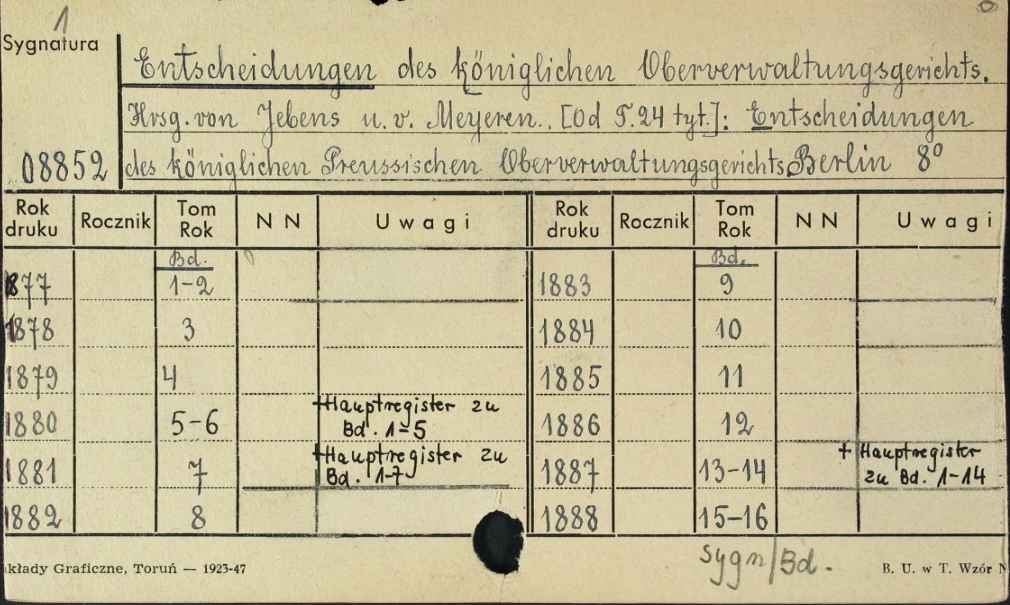 1
Sygnatura
Entscheidungen des königlichen Oberverwaltungsgerichts.
Hrsg. von Jebens u. v. Meyeren. [Od T.24 tyt.]: Entscheidungen
08852 des königlichen Preussischen Oberverwaltungsgerichts Berlin 8°
Rok druku Rocznik Tom Rok N N Uwagi Rok druku Rocznik Tom Rok N N Uwagi
Bd. Bd.
1877 1-2 1883 9
1878 3 1884 10
1879 4 1885 11
1880 5-6 +Hauptregister zu Bd. 1-5 1886 12
1881 7 +Hauptregister zu Bd. 1-7 1887 13-14 + Hauptregister zu Bd. 1-14
1882 8 1888 15-16
Sygn/Bd.
kłady Graficzne, Toruń — 1923-47 B. U. w T. Wzór N